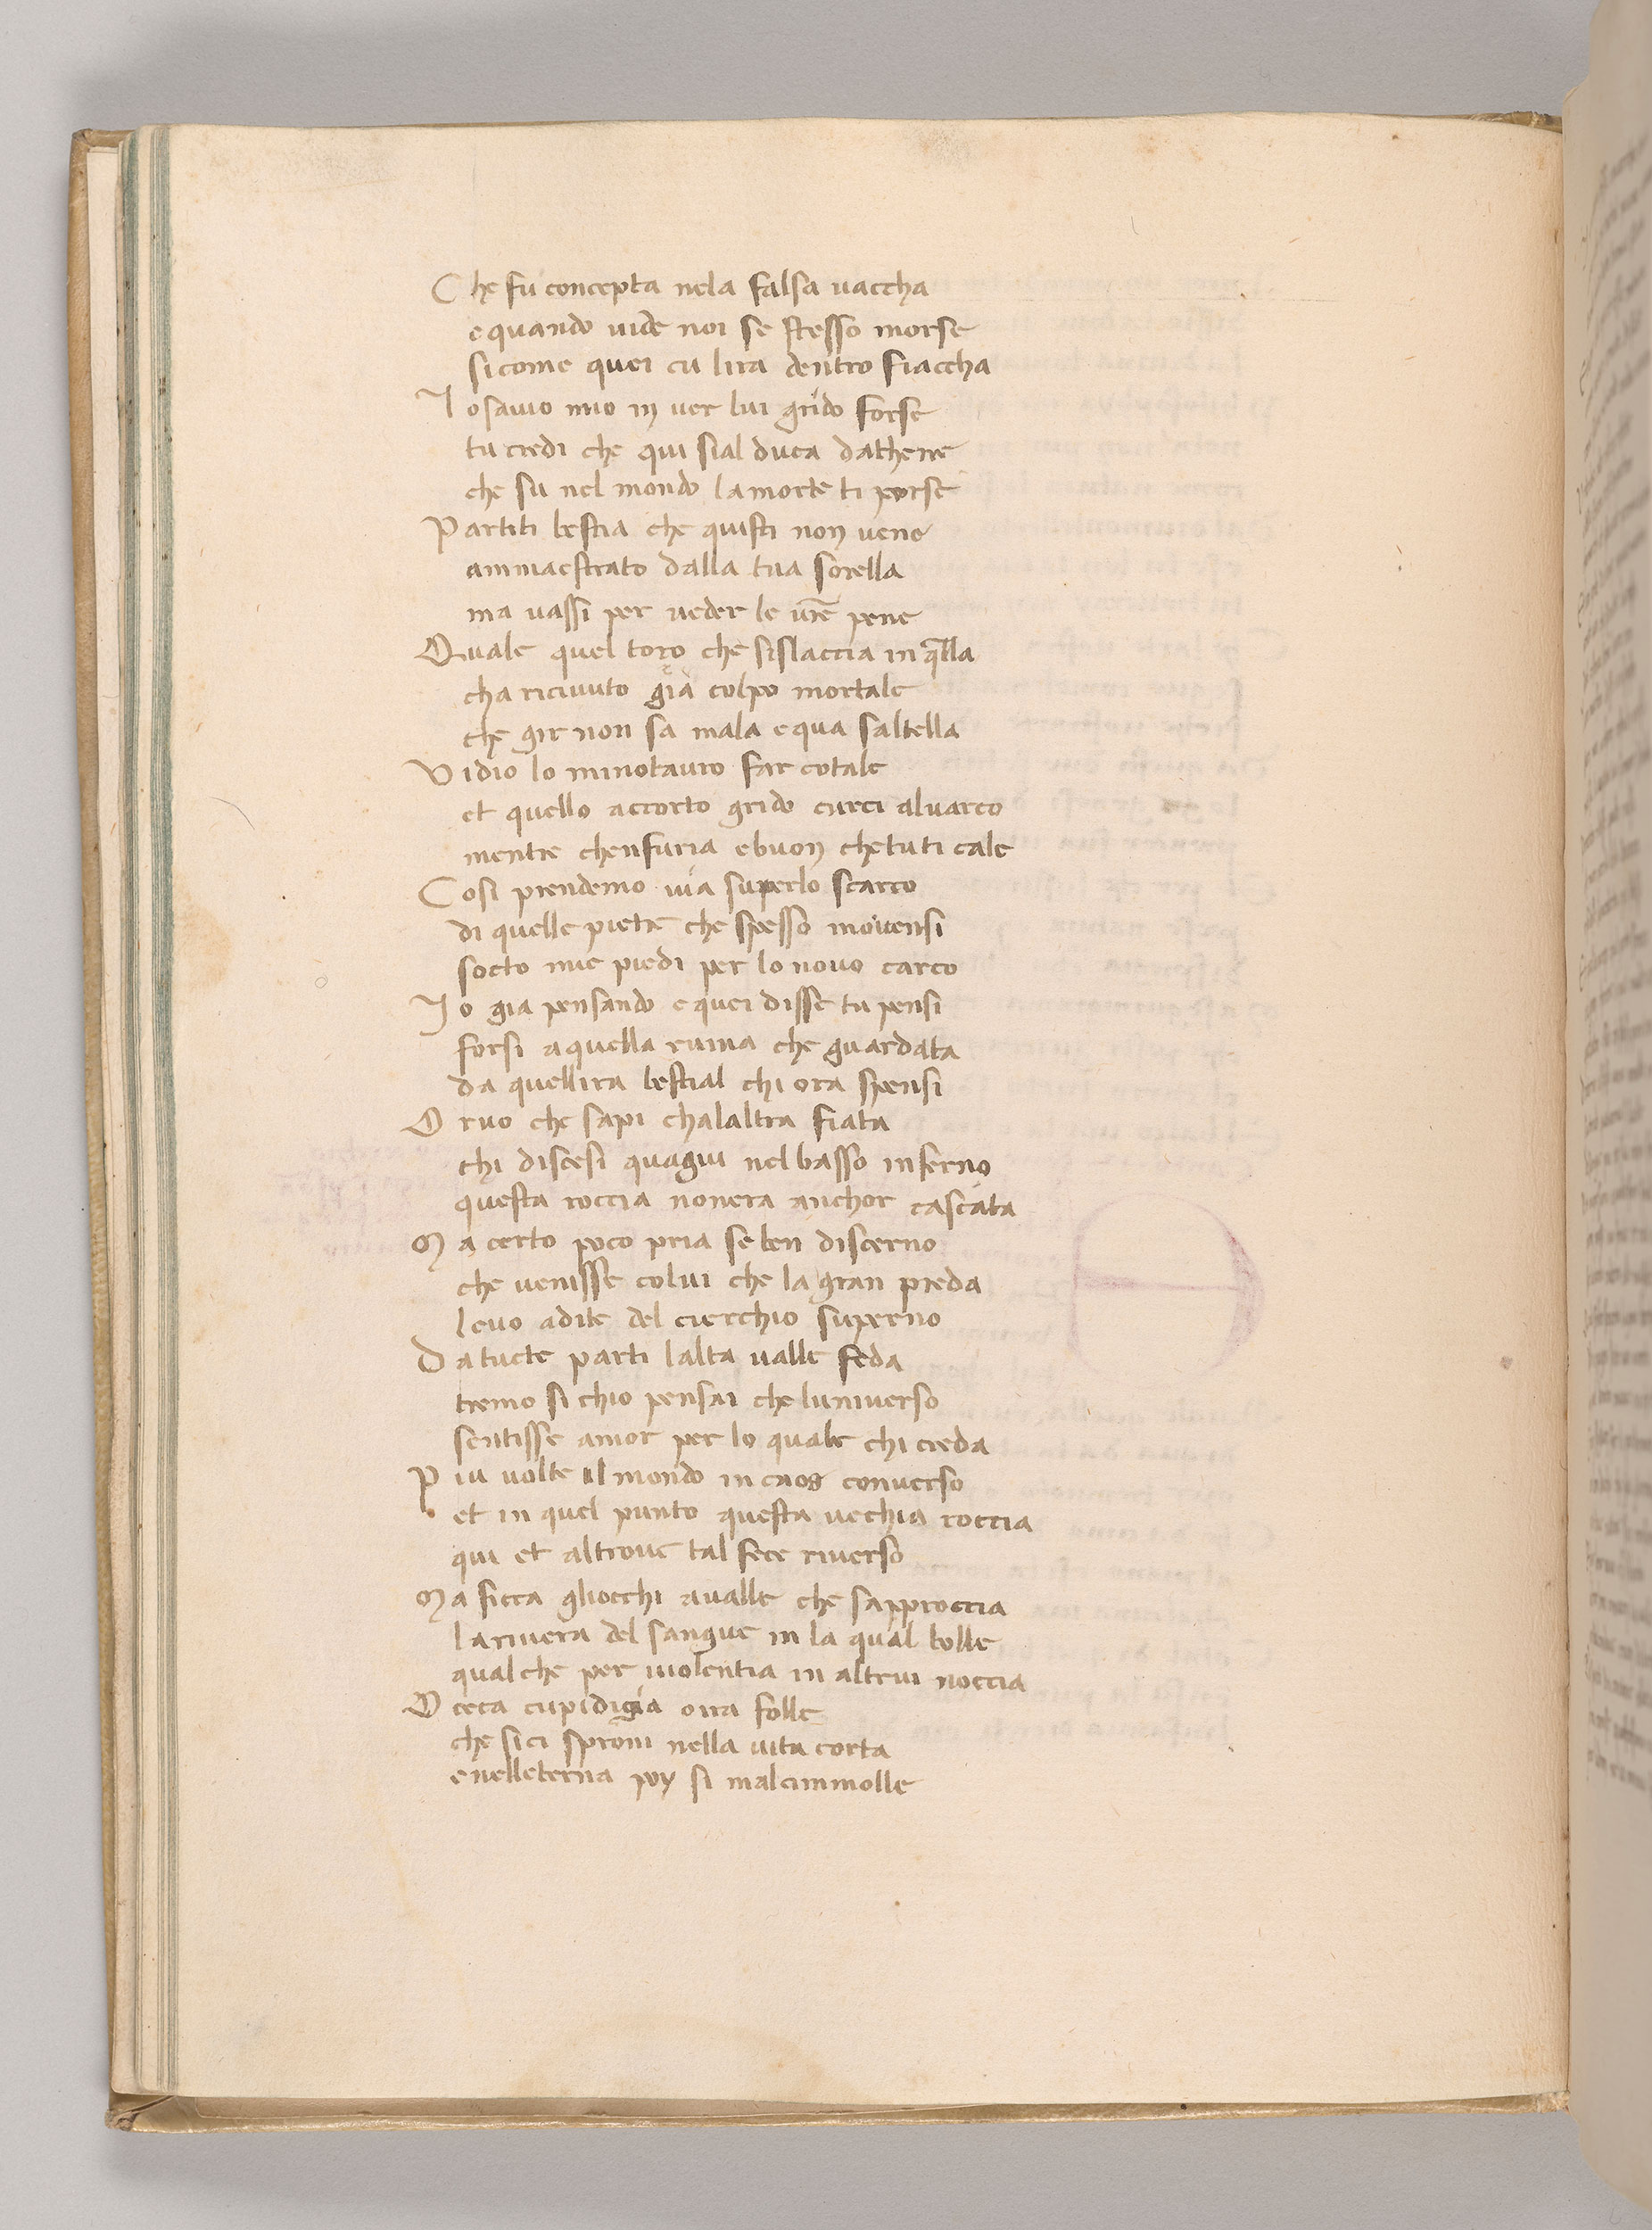 Che fu concepta nela falsa vaccha
e quando vide noi se stesso morse
si come quei cu lira dentro fiaccha
Io savio mio in ver lui grido forse
tu credi che qui sial duca dathene
che su nel mondo la morte ti porse
Partiti bestia che quisti non vene
ammaestrato dalla tua sorella
ma vassi per veder le vr̃e pene
Quale quel toro che sislaccia in q̃lla
cha ricivuto gia colpo mortale
che gir non sa mala e qua saltella
Vidio lo minotauro far cotale
et quello accorto grido curci alvarco
mentre chenfuria e buon che tu ti cale
Cosi prendemo via su per lo scarco
di quelle pietre che spesso movensi
socto mie piedi per lo novo carco
Io gia pensando e quei disse tu pensi
forsi a quella ruina che guardata
da quellira bestial chi ora spensi
Or vuo che sapi cha laltra fiata
chi discesi qua giu nel basso inferno
questa roccia nonera anchor cascata
Ma certo poco pria se ben discerno
che venisse colui che la gran preda
levo adite del cierchio superno
Da tucte parti lalta valle feda
tremo si chio pensai che luniverso
sentisse amor per lo quale chi creda
Piu volte il mondo in caos converso
et in quel punto questa vechia roccia
qui et altrove tal fece riverso
Ma ficca gliocchi avalle che sapproccia
la rivera del sangue in la qual bolle
qual che per violentia in altrui noccia
O ceca cupidigia o ira folle
che si ci sproni nella vita corta
e nelleterna poy si mal cimmolle